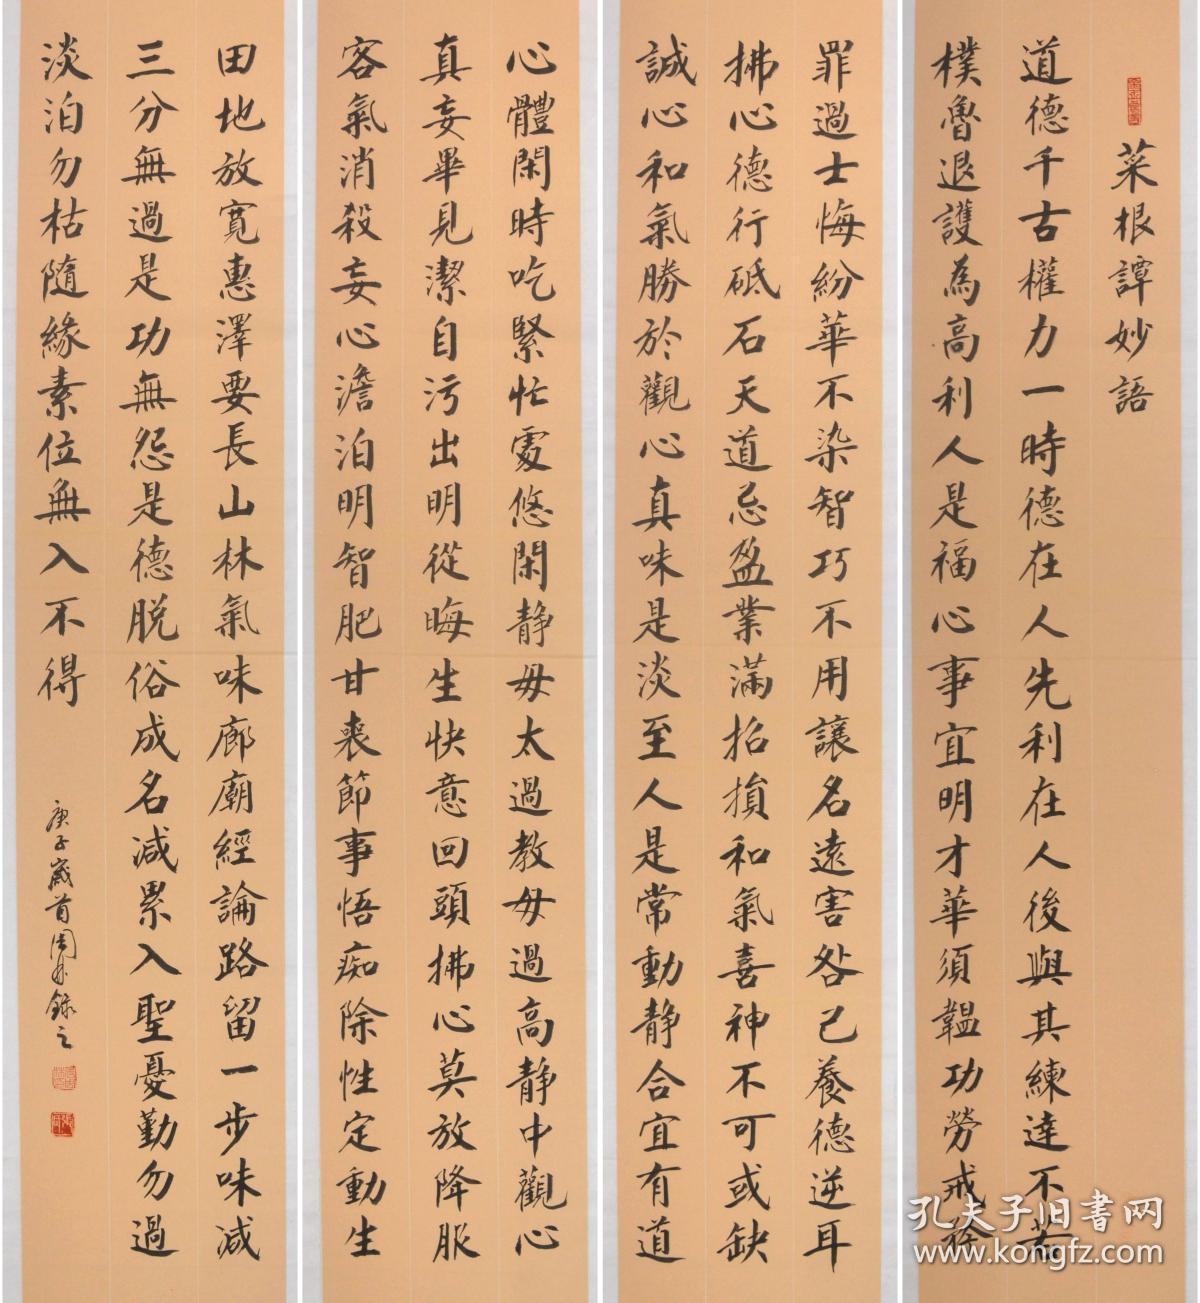 菜根譚妙語
道德千古權力一時德在人先利在人後與其練達不若
樸魯退護為高利人是福心事宜明才華須韞功勞戒
罪過士悔紛華不染智巧不用讓名遠害咎己養德逆耳
拂心德行砥石天道忌盈業滿招損和氣喜神不可或缺
誠心和氣勝於觀心真味是淡至人是常動静合宜有道
心體閑時吃緊忙處悠閑静毋太過教毋過高静中觀心
真妄畢見潔自污出明從晦生快意回頭拂心莫放降服
客氣消殺妄心澹泊明智肥甘喪節事悟痴除性定動生
田地放寬惠澤要長山林氣味廊廟經論路留一步味減
三分無過是功無怨是德脱俗成名減累入聖憂勤勿過
淡泊勿枯隨緣素位無入不得
庚子歲首周錄之
孔夫子旧書网
www.kongfz.com